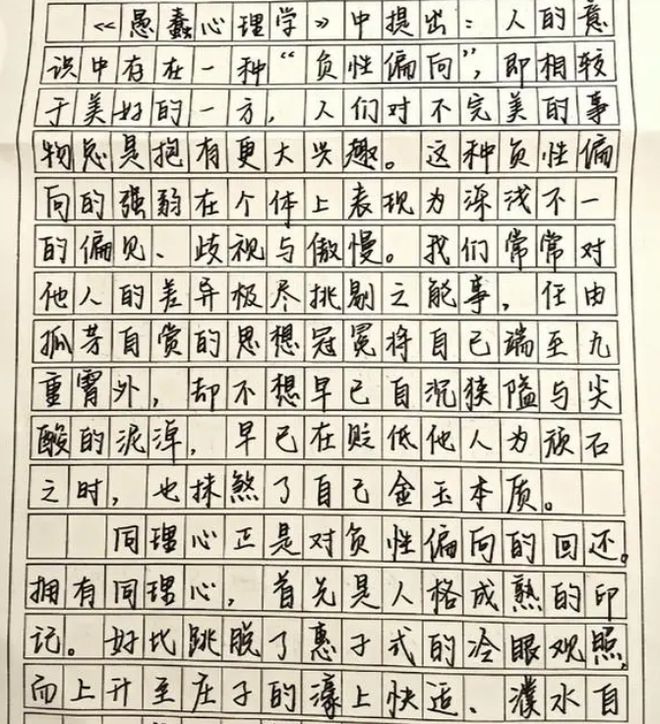 《愚蠢心理学》中提出：人的意
识中存在一种“负性偏向”，即相较
于美好的一方，人们对不完美的事
物总是抱有更大兴趣。这种负性偏
向的强弱在个体上表现为深浅不一
的偏见、歧视与傲慢。我们常常对
他人的差异极尽挑剔之能事，任由
孤芳自赏的思想冠冕将自己端至九
重霄外，却不想早已自沉狭隘与尖
酸的泥淖，早已在贬低他人为顽石
之时，也抹煞了自己金玉本质。
同理心正是对负性偏向的回还。
拥有同理心，首先是人格成熟的印
记。好比跳脱了惠子式的冷眼观照，
而上升至庄子的濠上快适、濮水自